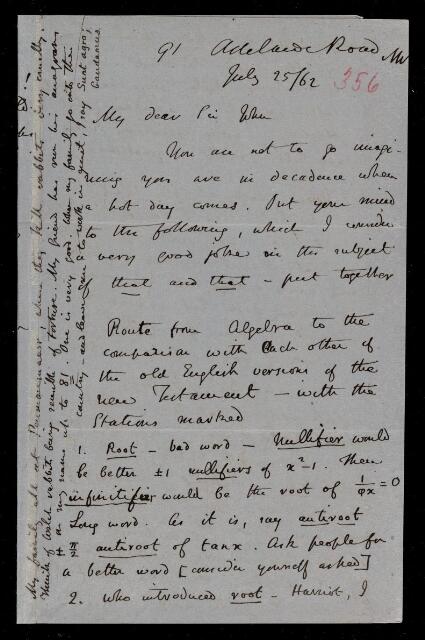 91 Adelaide Road NW
July 25/62
356
My dear Sir John
You are not to go imagi-
ning you are in decadence when
a hot day comes. Put your mind
to the following, which I consider
very good joke in the subject
of that and that – put together
Route from Algebra to the
comparison with each other of
the old English versions of the
new Testament – with the
Stations marked
1. Root – bad word – Nullifier would
be better ±1 nullifiers of x²-1. Then
infinitifier would be the root of 1/φx = 0
Long word. As it is, say antiroot
± π/2 antiroot of tan x. Ask people for
a better word [consider yourself asked]
2. Who introduced root – Harriot, I
My family all at , where they kill rabbits very cruelly.
of wild rabbits being of torture. My friend has run his anagrams
on my name up to 81. One is very good. When my family go into the
country – and leave me to work in quiet, I say Sunt agro;
Gaudeamus.